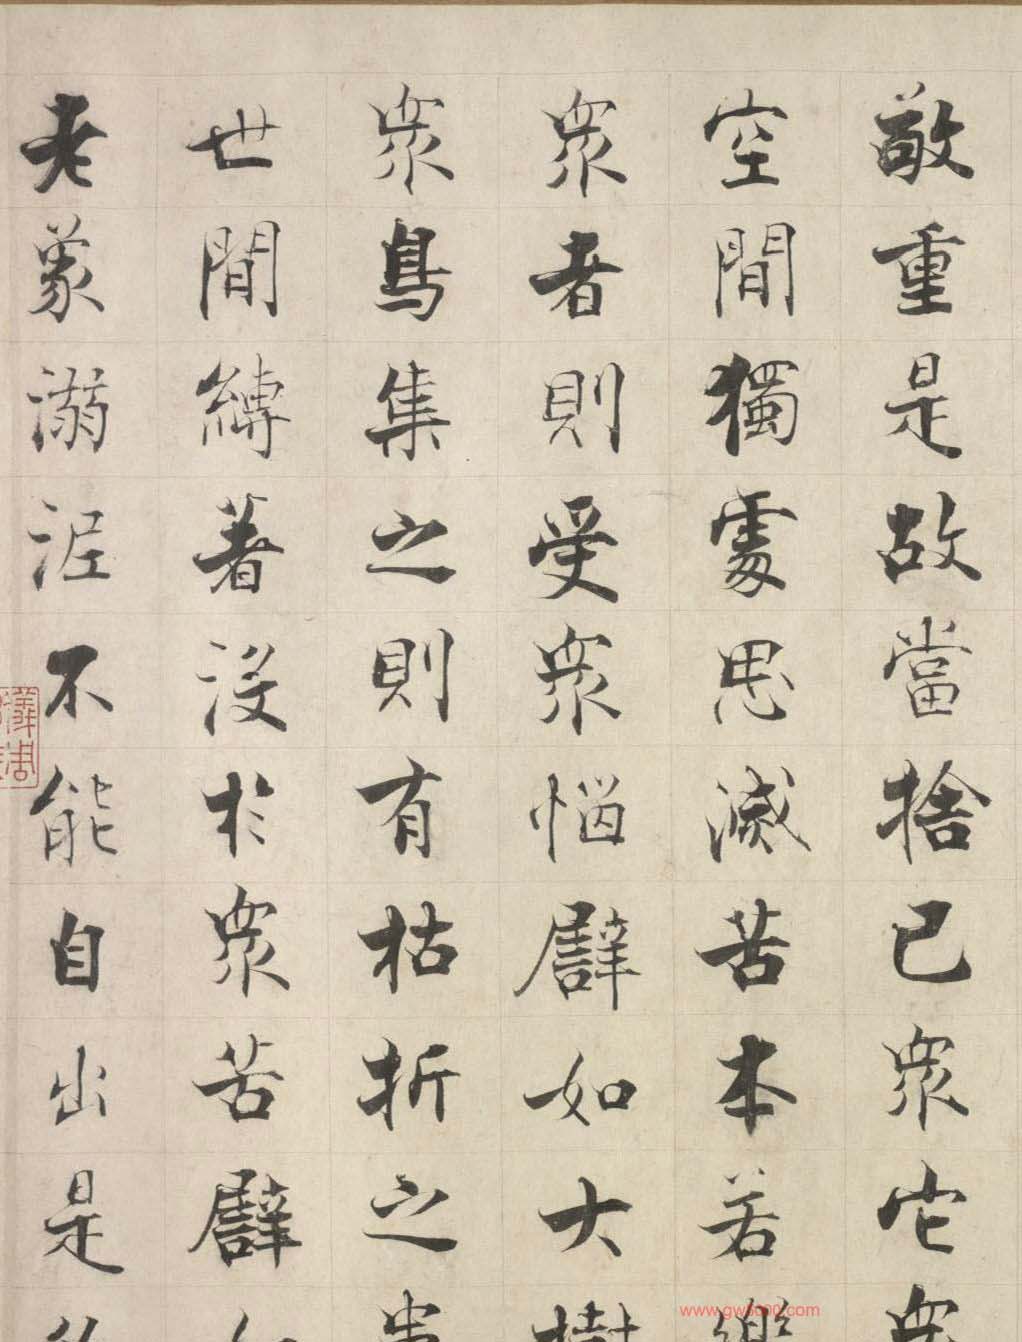 敬重是故當捨己衆它衆
空閒獨處思滅苦本若樂
衆者則受衆惱譬如大樹
衆鳥集之則有枯折之患
世間縛著没於衆苦譬
老象溺泥不能自出是
www.gw5000.com